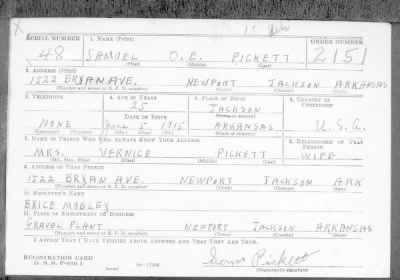 SERIAL NUMBER 1. NAME (Print) ORDER NUMBER
48 SAMUEL O. E. PICKETT 2151
(First) (Middle) (Last)
2. ADDRESS (Print)
1522 BRYAN AVE. NEWPORT JACKSON ARKANSAS
(Number and street or R. F. D. number) (Town) (County) (State)
3. TELEPHONE 4. AGE IN YEARS 5. PLACE OF BIRTH 6. COUNTRY OF CITIZENSHIP
25 JACKSON
(Town or county)
DATE OF BIRTH
NONE June 1915 ARKANSAS U.S.A.
(Exchange) (Number) (Mo.) (Day) (Yr.) (State or country)
7. NAME OF PERSON WHO WILL ALWAYS KNOW YOUR ADDRESS 8. RELATIONSHIP OF THAT PERSON
MRS. VERNICE PICKETT WIFE
(Mr., Mrs., Miss) (First) (Middle) (Last)
9. ADDRESS OF THAT PERSON
1522 BRYAN AVE. NEWPORT JACKSON ARK
(Number and street or R. F. D. number) (Town) (County) (State)
10. EMPLOYER'S NAME
BRICE MOBLEY
11. PLACE OF EMPLOYMENT OR BUSINESS
GRAVEL PLANT NEWPORT JACKSON ARKANSAS
(Number and street or R. F. D. number) (Town) (County) (State)
I AFFIRM THAT I HAVE VERIFIED ABOVE ANSWERS AND THAT THEY ARE TRUE.
REGISTRATION CARD
D. S. S. Form 1 Pickett
(Registrant's signature)